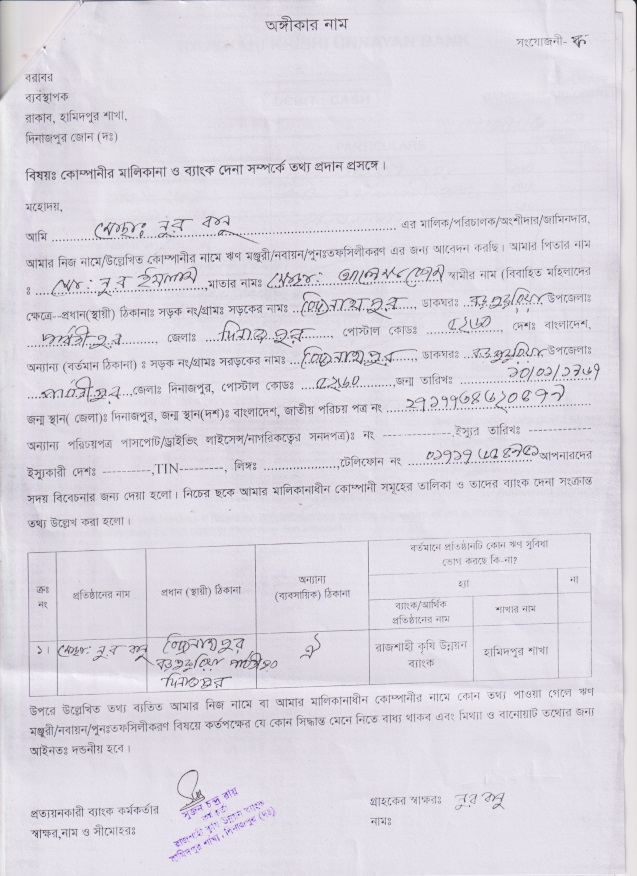 অঙ্গীকার নাম
সংযোজনী- ক
বরাবর
ব্যবস্থাপক
রাকাব, হামিদপুর শাখা,
দিনাজপুর জোন (দঃ)
বিষয়ঃ কোম্পানীর মালিকানা ও ব্যাংক দেনা সম্পর্কে তথ্য প্রদান প্রসঙ্গে।
মহোদয়,
আমি মোছাঃ নুর বানু এর মালিক/পরিচালক/অংশীদার/জামিনদার,
আমার নিজ নামে/উল্লেখিত কোম্পানীর নামে ঋণ মঞ্জুরী/নবায়ন/পুনঃতফসিলীকরণ এর জন্য আবেদন করছি। আমার পিতার নাম
ঃ মোঃ নুর ইসলাম ,মাতার নামঃ মোছাঃ স্বামীর নাম (বিবাহিত মহিলাদের
ক্ষেত্রে--প্রধান(স্থায়ী) ঠিকানাঃ সড়ক নং/গ্রামঃ সড়কের নামঃ , ডাকঘরঃ উপজেলাঃ
পার্বতীপুর , জেলাঃ দিনাজপুর , পোস্টাল কোডঃ ৫২৬০ , দেশঃ বাংলাদেশ,
অন্যান্য (বর্তমান ঠিকানা) ঃ সড়ক নং/গ্রামঃ সরড়কের নামঃ , ডাকঘরঃ উপজেলাঃ
পার্বতীপুর জেলাঃ দিনাজপুর, পোস্টাল কোডঃ ৫২৬০ ,জন্ম তারিখঃ
জন্ম স্থান( জেলা)ঃ দিনাজপুর, জন্ম স্থান(দশ)ঃ বাংলাদেশ, জাতীয় পরিচয় পত্র নং
অন্যান্য পরিচয়পত্র পাসপোর্ট/ড্রাইভিং লাইসেন্স/নাগরিকত্বের সনদপত্র)ঃ নং --------------,ইস্যুর তারিখঃ -------------
ইস্যুকারী দেশঃ ----------,TIN---------, লিঙ্গঃ ......................,টেলিফোন নং আপনারদের
সদয় বিবেচনার জন্য দেয়া হলো। নিচের ছকে আমার মালিকানাধীন কোম্পানী সমূহের তালিকা ও তাদের ব্যাংক দেনা সংক্রান্ত
তথ্য উল্লেখ করা হলো।
ক্রঃ নং
প্রতিষ্ঠানের নাম
প্রধান (স্থায়ী) ঠিকানা
অন্যান্য
(ব্যবসায়িক) ঠিকানা
বর্তমানে প্রতিষ্ঠানটি কোন ঋণ সুবিধা
ভোগ করছে কি-না?
হ্যা
না
ব্যাংক/আর্থিক
প্রতিষ্ঠানের নাম
শাখার নাম
১।
মোছাঃ নুর বানু
দিনাজপুর
ঐ
রাজশাহী কৃষি উন্নয়ন
ব্যাংক
হামিদপুর শাখা
উপরে উল্লেখিত তথ্য ব্যতিত আমার নিজ নামে বা আমার মালিকানাধীন কোম্পানীর নামে কোন তথ্য পাওয়া গেলে ঋণ
মঞ্জুরী/নবায়ন/পুনঃতফসিলীকরণ বিষয়ে কর্তপক্ষের যে কোন সিদ্ধান্ত মেনে নিতে বাধ্য থাকব এবং মিথ্যা ও বানোয়াট তথ্যের জন্য
আইনতঃ দন্ডনীয় হবে।
প্রত্যয়নকারী ব্যাংক কর্মকর্তার
স্বাক্ষর,নাম ও সীমোহরঃ
সুজন চন্দ্র রায়
রাজশাহী কৃষি উন্নয়ন ব্যাংক
হামিদপুর শাখা, দিনাজপুর (দঃ)
গ্রাহকের স্বাক্ষরঃ নুর বানু
নামঃ